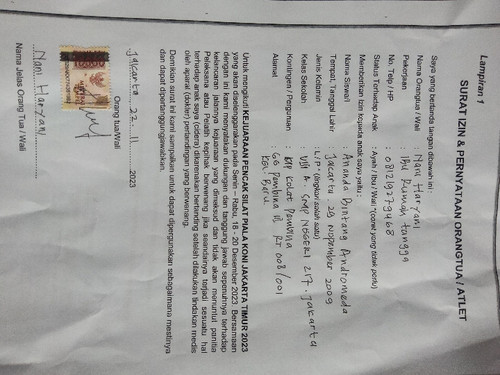 Lampiran 1
SURAT IZIN & PERNYATAAN ORANGTUA / ATLET
Saya yang bertanda tangan dibawah ini :
Nama Orangtua / Wali : Nani Haryani
Pekerjaan : Ibu Rumah tangga
No. Telp / HP : 081219279468
Status Terhadap Anak : Ayah / Ibu / Wali *(coret yang tidak perlu)
Memberikan Izin kepada anak saya yaitu :
Nama Siswa/i : Ananda Bintang Andromeda
Tempat, Tanggal Lahir : Jakarta . 29 Nopember 2009
Jenis Kelamin : L / P * (lingkari salah satu)
Kelas Sekolah : VIII A. SMP NEGERI 217. Jakarta
Kontingen / Perguruan :
Alamat : GG Pembina RT 008/001
Untuk mengikuti KEJUARAAN PENCAK SILAT PIALA KONI JAKARTA TIMUR 2023
yang akan diselenggarakan pada Senin - Rabu, 18 - 20 Desember 2023. Bersamaan
dengan ini kami menyatakan dukungan dan tanggung jawab sepenuhnya terhadap
kelancaran jalannya kejuaraan yang dimaksud dan tidak akan menuntut panitia
Pelaksana atau Pelatih kepihak berwenang jika seandainya terjadi sesuatu hal
terhadap anak saya (cidera) dikarenakan bertanding setelah dilakukan tindakan medis
oleh aparat (dokter) pertandingan yang berwenang.
Demikian surat ini kami sampaikan untuk dapat dipergunakan sebagaimana mestinya
dan dapat dipertanggungjawabkan.
Jakarta 22. 11 2023
Orang tua/Wali
Nani Haryani
Nama Jelas Orang Tua / Wali